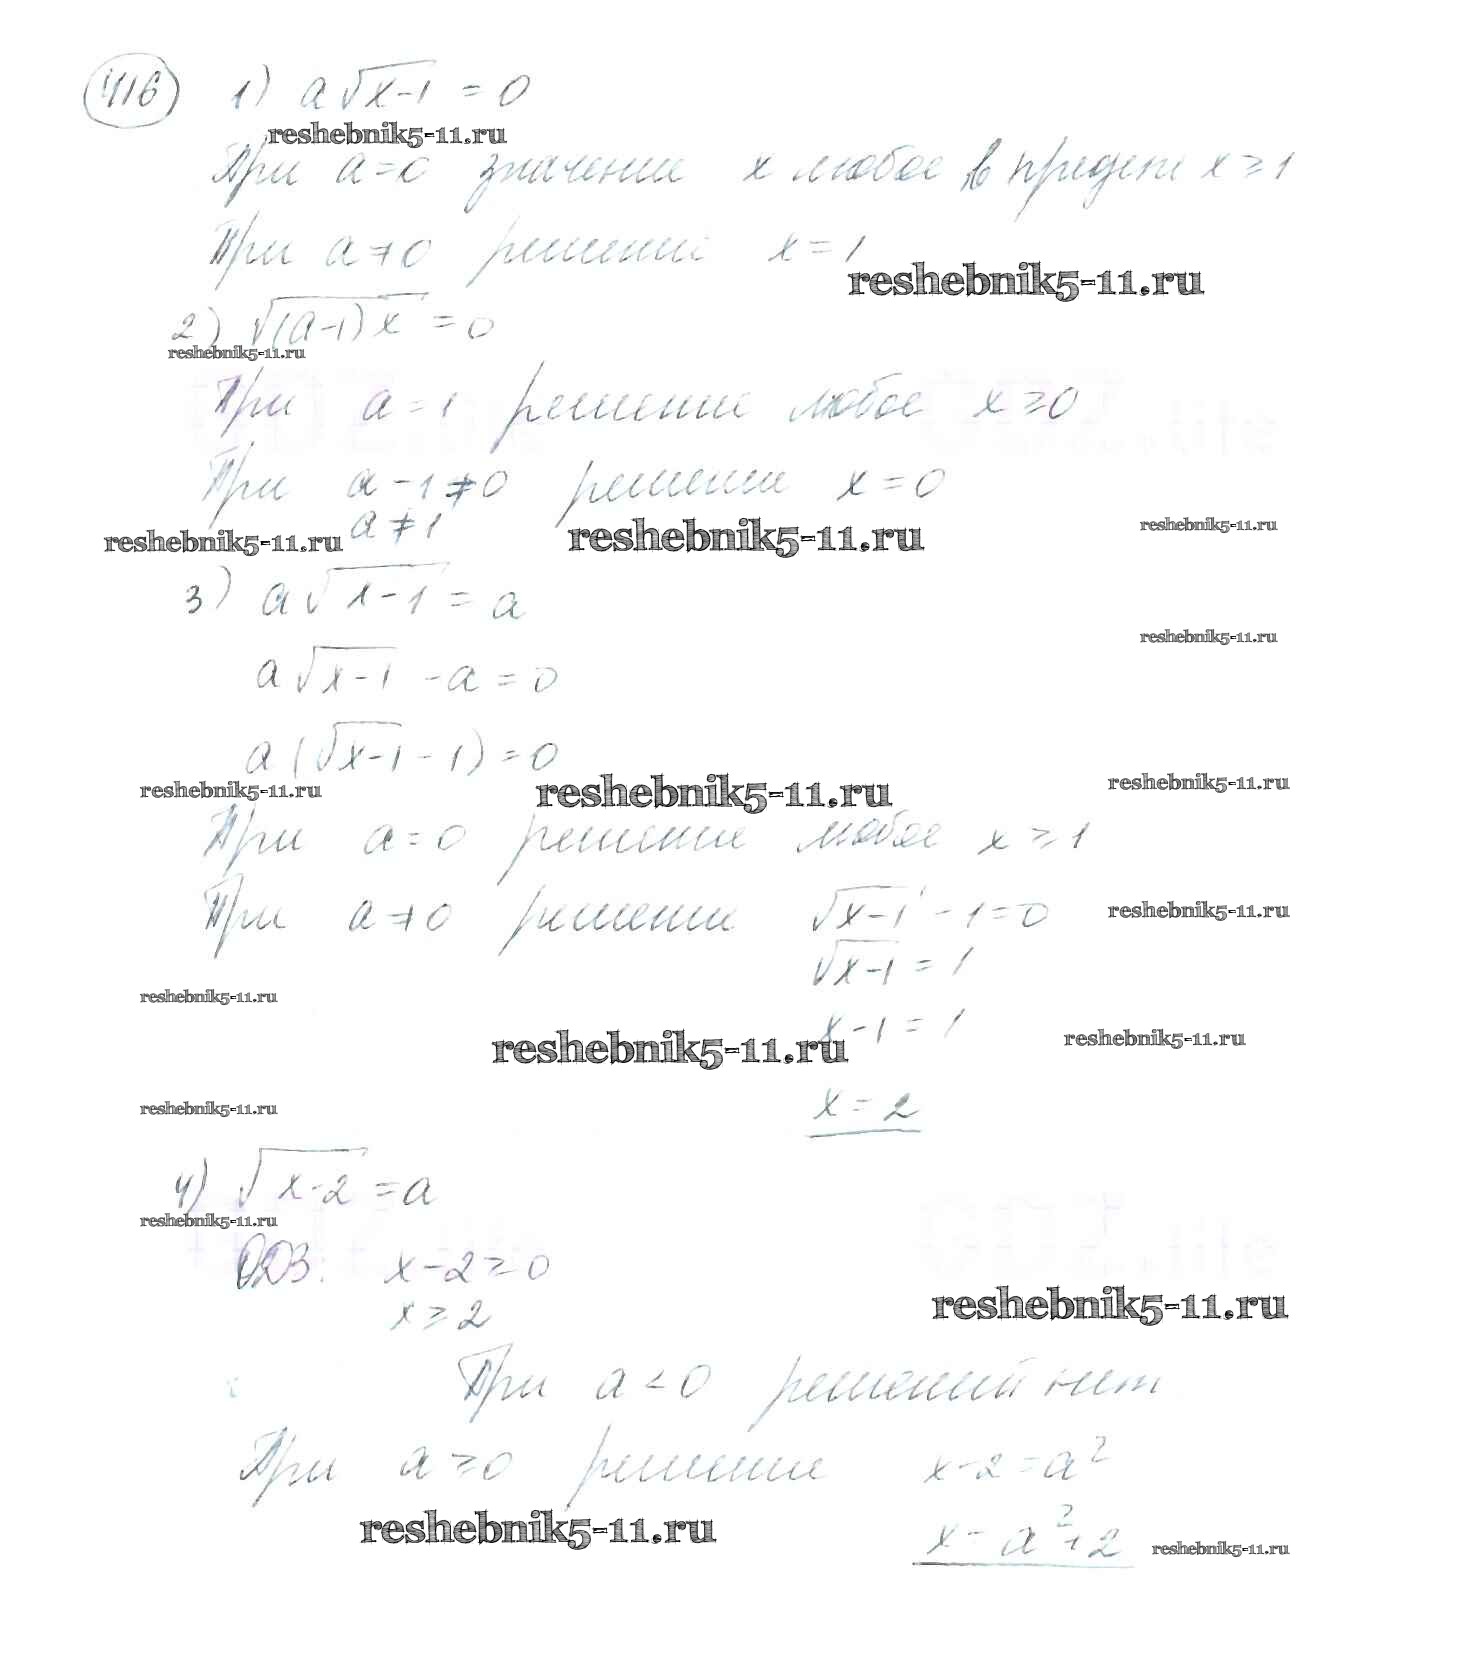 416 1) a√(x-1) = 0
reshebnik5-11.ru
При a=0 значение x любое в пределе x≥1
При a≠0 решение x=1
reshebnik5-11.ru
2) √((a-1)x) = 0
reshebnik5-11.ru
GDZ.life GDZ.life
При a=1 решение любое x≥0
При a-1≠0 решение x=0
a≠1
reshebnik5-11.ru reshebnik5-11.ru reshebnik5-11.ru
3) a√(x-1) = a
reshebnik5-11.ru
a√(x-1) -a=0
a(√(x-1) -1)=0
reshebnik5-11.ru reshebnik5-11.ru reshebnik5-11.ru
При a=0 решение любое x≥1
При a≠0 решение √(x-1) -1=0
reshebnik5-11.ru
√(x-1) = 1
reshebnik5-11.ru
x-1=1
reshebnik5-11.ru reshebnik5-11.ru
x=2
reshebnik5-11.ru
4) √(x-2) = a
reshebnik5-11.ru
GDZ.life GDZ.life
ОДЗ: x-2≥0
x≥2
reshebnik5-11.ru
При a<0 решений нет
При a≥0 решение x-2=a²
reshebnik5-11.ru
x=a²+2
reshebnik5-11.ru